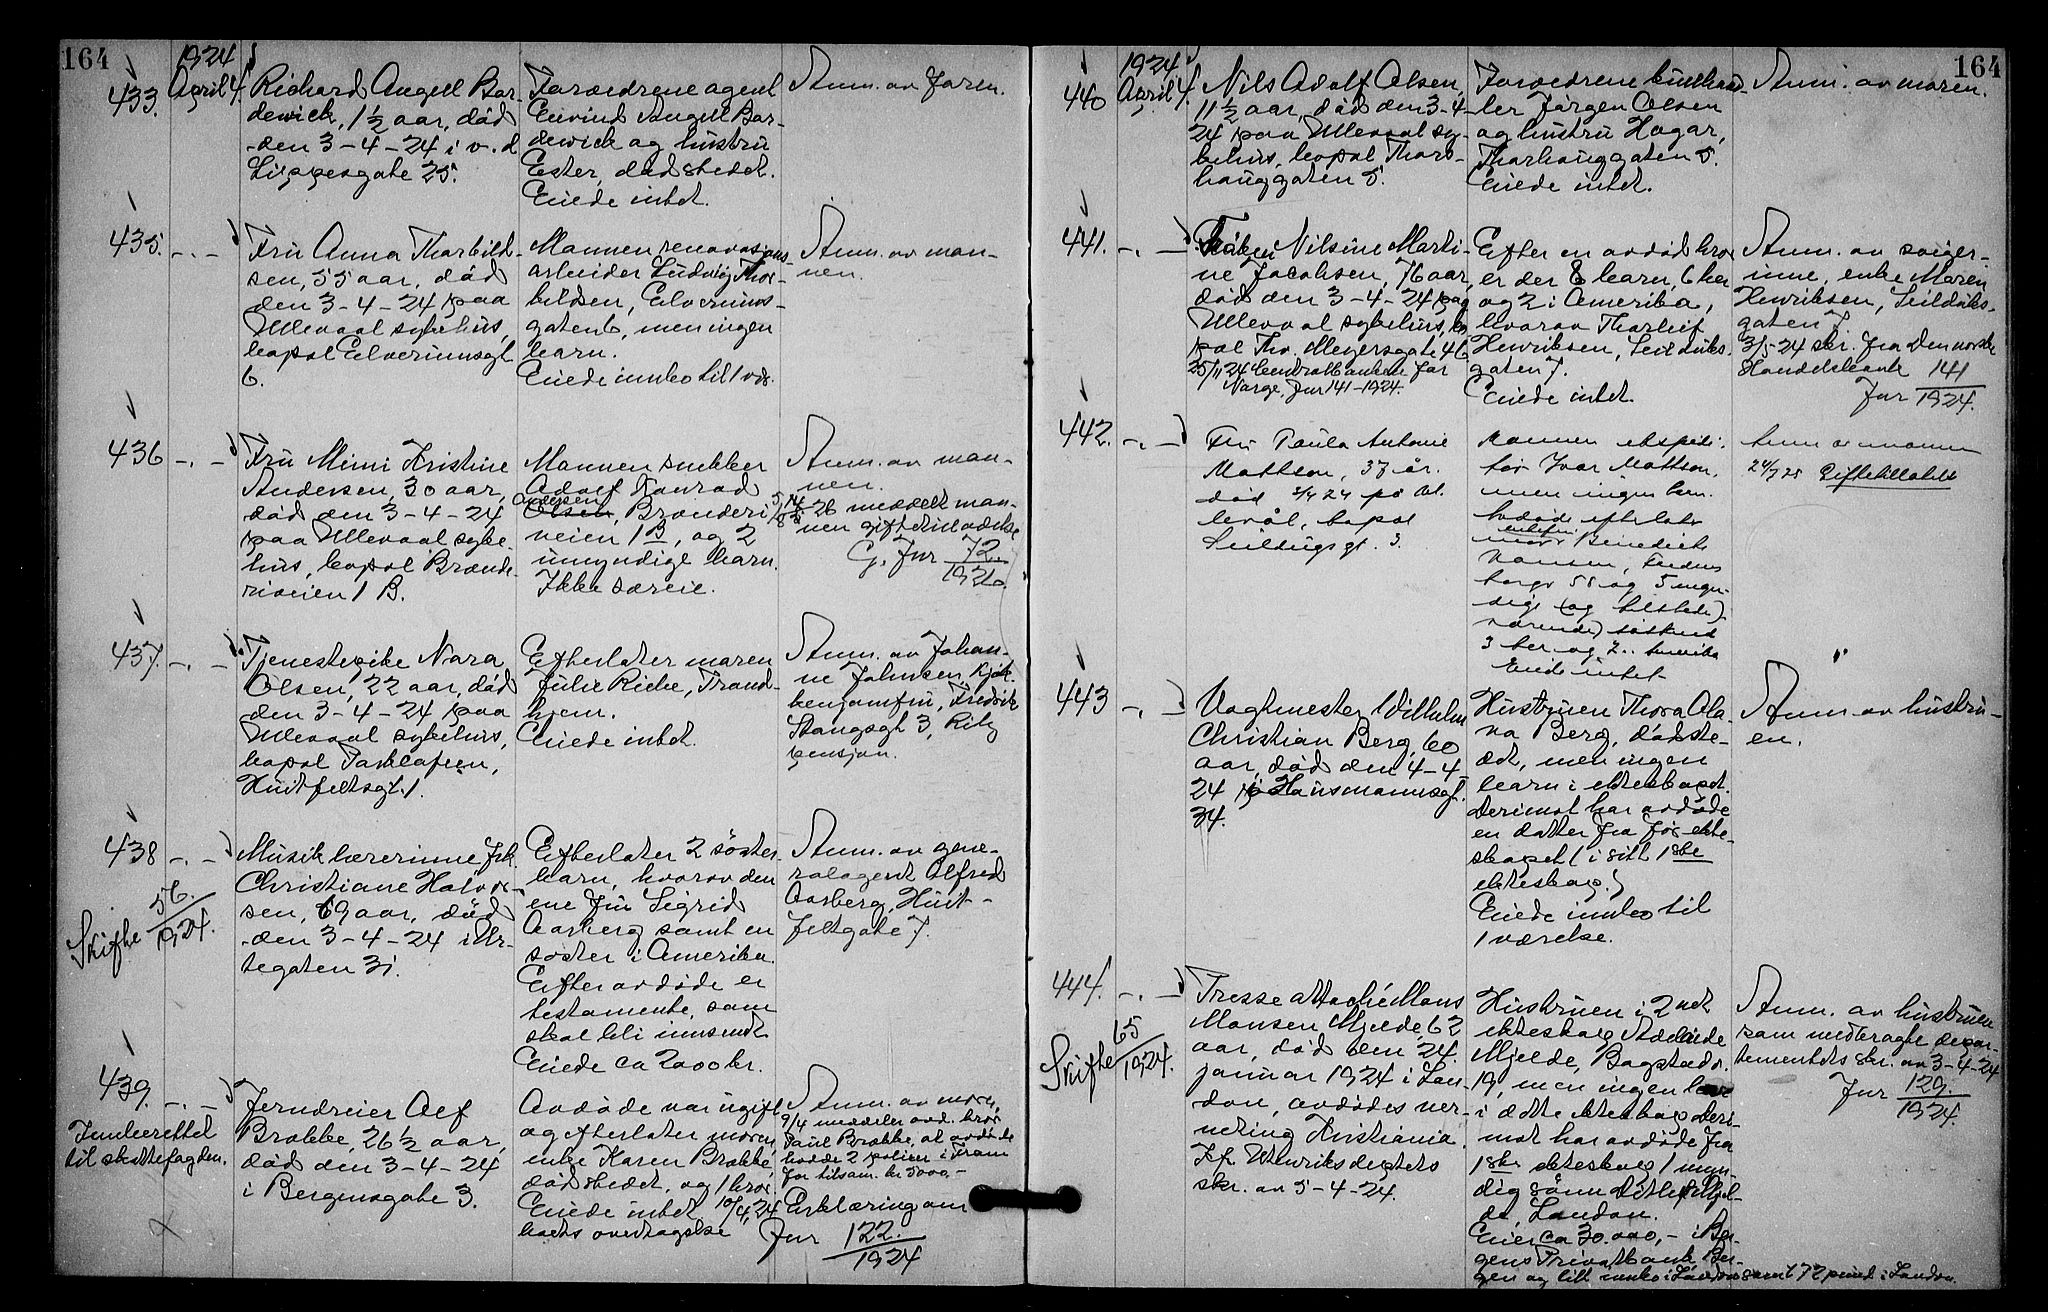 164
1924
433.
April 4.
Richard Angell Bar-
dewick, 1 1/2 aar, död
den 3-4-24 i v. d
Lippesgate 25.
Foreldrene agent
Eivind Angell Bar-
dewick og hustru
Ester, dødstedet.
Eiede intet.
Anm. av faren.
435.
-.-
Fru Anna Thorbild-
sen, 55 aar, död
den 3-4-24 paa
Ullevaal sykehus,
bopæl Elverumsgt.
6.
Mannen renovasjons-
arbeider Ludvig Thor-
bildsen, Elverums-
gaten 6, men ingen
barn.
Eiede innbo til 1 vær.
Anm. av man-
nen.
436
-.-
Fru Mimi Kristine
Andersen, 30 aar,
död den 3-4-24
paa Ullevaal syke-
hus, bopæl Brænde-
riveien 1 B.
Mannen snekker
Adolf Konrad
Andersen
Olsen, Brænderi
veien 1 B, og 2
umyndige barn.
Ikke særeie.
Anm. av man-
nen.
26 meddelt man-
nen
G. Jnr 72
1926
437.
-.-
Tjenestepike Nara
Olsen, 22 aar, död
den 3-4-24 paa
Ullevaal sykehus,
bopæl Parkcafeen,
Huitfeltsgt. 1.
Efterlater moren
Julie Riche, Trond-
hjem.
Eiede intet.
Anm. av Johan-
ne Johnsen, kjök-
kenjomfru, Fredrik
Stangsgt 3, Ritz
pensjon.
438
-.-
Skifte 56.
1924.
Musiklærerinne frk.
Christiane Halvor-
sen, 69 aar, död
den 3-4-24 i Ur-
tegaten 31.
Efterlater 2 söster-
barn, hvorav den
ene fru Sigrid
Aarberg samt en
söster i Amerika.
Efter avdöde er
testamente, som
skal bli innsendt
Eiede ca 2000 kr.
Anm. av gene-
ralagent Alfred
Aarberg, Huit-
feltgate 7.
439.
-.-
Innberettet
til skattefogden.
Jerndreier Alf
Brække, 26 1/2 aar,
död den 3-4-24
i Bergensgate 3.
Avdöde var ugift
og efterlater moren,
enke Karen Brække,
dödstedet, og 1 bror.
Eiede intet
10/4 24 Erklæring om
boets overtagelse
Jnr 122.
1924
Anm. av moren,
9/4 meddeler avd. bror
Paul Brække, at avdöde
hadde 2 poliser i Fram
for tilsam. kr 5000,-
164
1924
440
April 4.
Nils Adolf Olsen,
11 1/2 aar, död den 3-4-
24 paa Ullevaal sy-
kehus, bopæl Thors-
hauggaten 5.
Foreldrene
ler Jörgen Olsen
og hustru Hagar,
Thorshauggaten 5.
Eiede intet.
Anm. av moren.
441.
-.-
Fröken Nilsine Marti-
ne Jacobsen, 76 aar,
död den 3-4-24 paa
Ullevaal sykehus, bo-
pæl Thv. Meyersgate 46
25/11 24 Centralbanken for
Norge, Jnr 141-1924.
Efter en avdöd bror
er der 8 barn, 6 her
og 2 i Amerika,
hvorav Thorleif
Henriksen, Seilduks-
gaten 7.
Eiede intet.
Anm. av sviger-
inne, enke Maren
Henriksen, Seilduks-
gaten 7.
3/5-24 skr. fra Den norske
Handelsbank 141
Jnr 1924.
442.
-.-
Fru Paula Antonie
Mattson, 37 år.
död 3/4 24 på Ul-
levål, bopæl
Seildugsgt. 3.
Mannen ekspedi-
tör Ivar Mattson,
men ingen barn.
Avdöde efterlater
mor Benedicte
Hansen,
55 og 5 myn-
dige (og tilstede-
værende) söskend
3 her og 2 i Amerika
Eiede intet
Anm av mannen
24/7 25 Giftetillatelse
443
-.-
Vagtmester Vilhelm
Christian Berg, 60
aar, död den 4-4-
24 i Hausmannsgt.
34.
Hustruen Thora Ola-
va Berg, dödste-
det, men ingen
barn i ekteskapet.
Derimot har avdöde
en datter fra för ekte-
skapet (i sitt 1ste
ekteskap.)
Eiede innbo til
1 værelse.
Anm. av hustru-
en.
444.
-.-
Skifte 65
1924.
Presse attaché Mons
Monsen Mjelde, 62
aar, död den 24.
januar 1924 i Lon-
don, avdödes ver-
neting Kristiania.
Jfr. Utenriksdeptets
skr. av 5-4-24.
Hustruen i 2net
ekteskap Adelaide
Mjelde, Bogstadv.
19, men ingen barn
i dette ekteskap. Deri-
mot har avdöde fra
1ste ekteskap 1 myn-
dig sönn Ditlef Mjel-
de, London.
Eier ca 30.000,- i Ber-
gens Privatbank Ber-
gen og litt innbo i London samt 72 pund i London.
Anm. av hustruen
som medbragte depar-
tementets skr. av 3-4-24
Jnr 129.
1924.